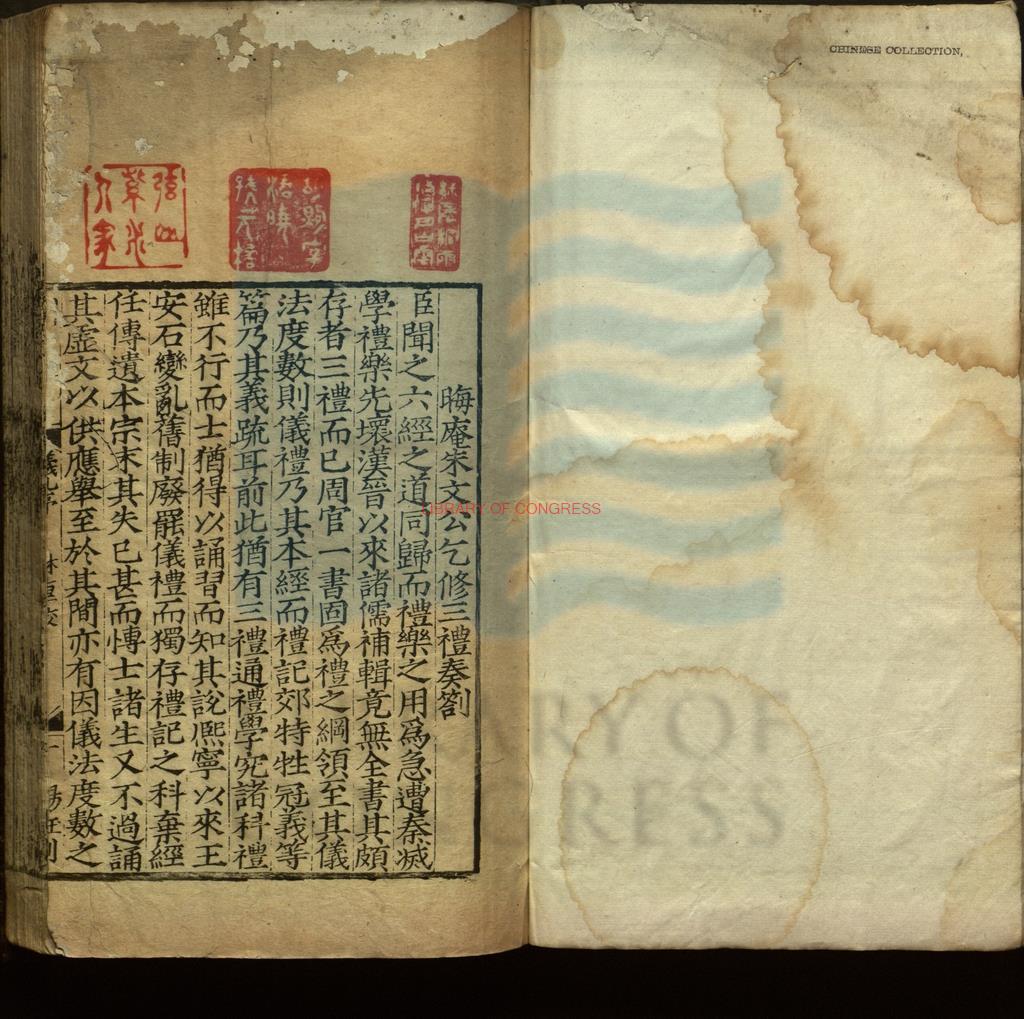 晦庵朱文公乞修三禮奏劄
臣聞之六經之道同歸而禮樂之用爲急遭秦滅
學禮樂先壞漢晉以來諸儒補輯竟無全書其頗
存者三禮而已周官一書固爲禮之綱領至其儀
法度數則儀禮乃其本經而禮記郊特牲冠義等
篇乃其義疏耳前此猶有三禮通禮學究諸科禮
雖不行而士猶得以誦習而知其說熙寧以來王
安石變亂舊制廢罷儀禮而獨存禮記之科棄經
任傳遺本宗末其失已甚而愽士諸生又不過誦
其虛文以供應舉至於其間亦有因儀法度數之
CHINESE COLLECTION,
LIBRARY OF CONGRESS
RY OF
RESS